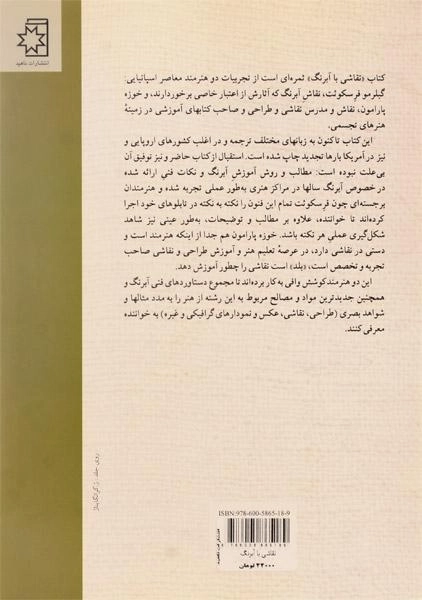 انتشارات ناهید
کتاب «نقاشی با آبرنگ» ثمره‌ای است از تجربیات دو هنرمند معاصر اسپانیایی:
گیلرمو فرسکوئت، نقاشِ آبرنگ که آثارش از اعتبار خاصی برخوردارند، و خوزه
پارامون، نقاش و مدرس نقاشی و طراحی و صاحب کتابهای آموزشی در زمینهٔ
هنرهای تجسمی.
این کتاب تاکنون به زبانهای مختلف ترجمه و در اغلب کشورهای اروپایی و
نیز در آمریکا بارها تجدید چاپ شده است. استقبال از کتاب حاضر و نیز توفیق آن
بی‌علت نبوده است: مطالب و روش آموزش آبرنگ و نکات فنیِ ارائه شده
در خصوص آبرنگ سالها در مراکز هنری به‌طور عملی تجربه شده و هنرمندان
برجسته‌ای چون فرسکوئت تمام این فنون را نکته به نکته در تابلوهای خود اجرا
کرده‌اند تا خواننده، علاوه بر مطالب و توضیحات، به‌طور عینی نیز شاهد
شکل‌گیری عملیِ هر نکته باشد. خوزه پارامون هم جدا از اینکه هنرمند است و
دستی در نقاشی دارد، در عرصهٔ تعلیم هنر و آموزش طراحی و نقاشی صاحب
تجربه و تخصص است، «بلد» است نقاشی را چطور آموزش دهد.
این دو هنرمند کوشش وافی به کار برده‌اند تا مجموع دستاوردهای فنی آبرنگ و
همچنین جدیدترین مواد و مصالح مربوط به این رشته از هنر را به مدد مثالها و
شواهد بصری (طراحی، نقاشی، عکس و نمودارهای گرافیکی و غیره) به خواننده
معرفی کنند.
روی جلد:
ISBN:978-600-5865-18-9
نقاشی با آبرنگ
۴۴۰۰۰ تومان